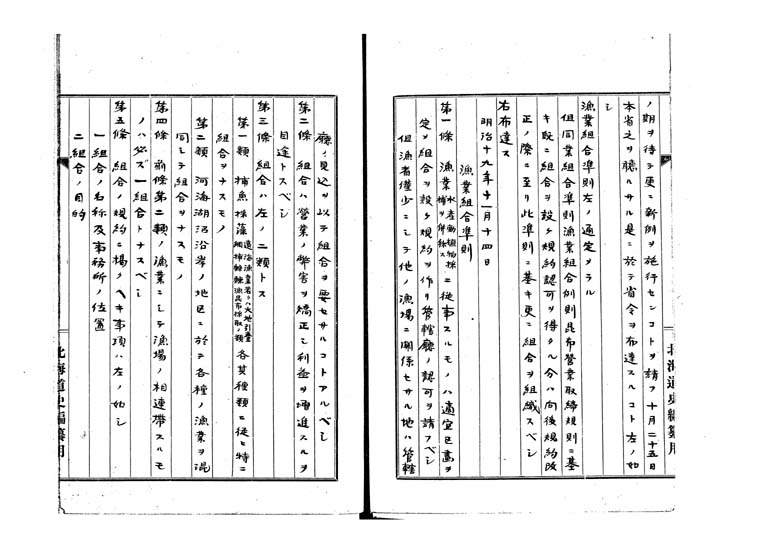 ノ期ヲ待テ更ニ新例ヲ施行センコトヲ請フ十月二十五日
本省之ヲ聴ルサル是ニ於テ省令ヲ布達スルコト左ノ如
シ
漁業組合準則左ノ通定メラル
但同業組合準則漁業組合例則昆布営業取締規則ニ基
キ既ニ組合ヲ設ケ規約認可ヲ得タル分ハ向後規約改
正ノ際ニ至リ此準則ニ基キ更ニ組合ヲ組織スベシ
右布達ス
明治十九年十一月十四日
漁業組合準則
第一條 漁業水産動植物採捕ヲ併称スニ従事スルモノハ適宜区画ヲ
定メ組合ヲ設ケ規約ヲ作リ管轄廳ノ認可ヲ請フベシ
但漁者僅少ニシテ他ノ漁場ニ関係セサル地ハ管轄
廳ノ見込ヲ以テ組合ヲ要セサルコトアルベシ
第二條 組合ハ営業ノ弊害ヲ矯正シ利益ヲ増進スルヲ
目途トスベシ
第三條 組合ハ左ノ二類トス
第一類 捕魚採藻遠海漁業若クハ大地引鰮網捕鯨鰊漁昆布採取ノ類各其種類ニ従ヒ特ニ
組合ヲナスモノ
第二類 河海湖沼沿岸ノ地区ニ於テ各種ノ漁業ヲ混
同シテ組合ヲナスモノ
第四條 前條第二類ノ漁業ニシテ漁場ノ相連帯スルモ
ノハ必ズ一組合トナスベシ
第五條 組合ノ規約ニ掲クヘキ事項ハ左ノ如シ
一組合ノ名称及事務所ノ位置
二組合ノ目的
北海道史編纂用
北海道史編纂用